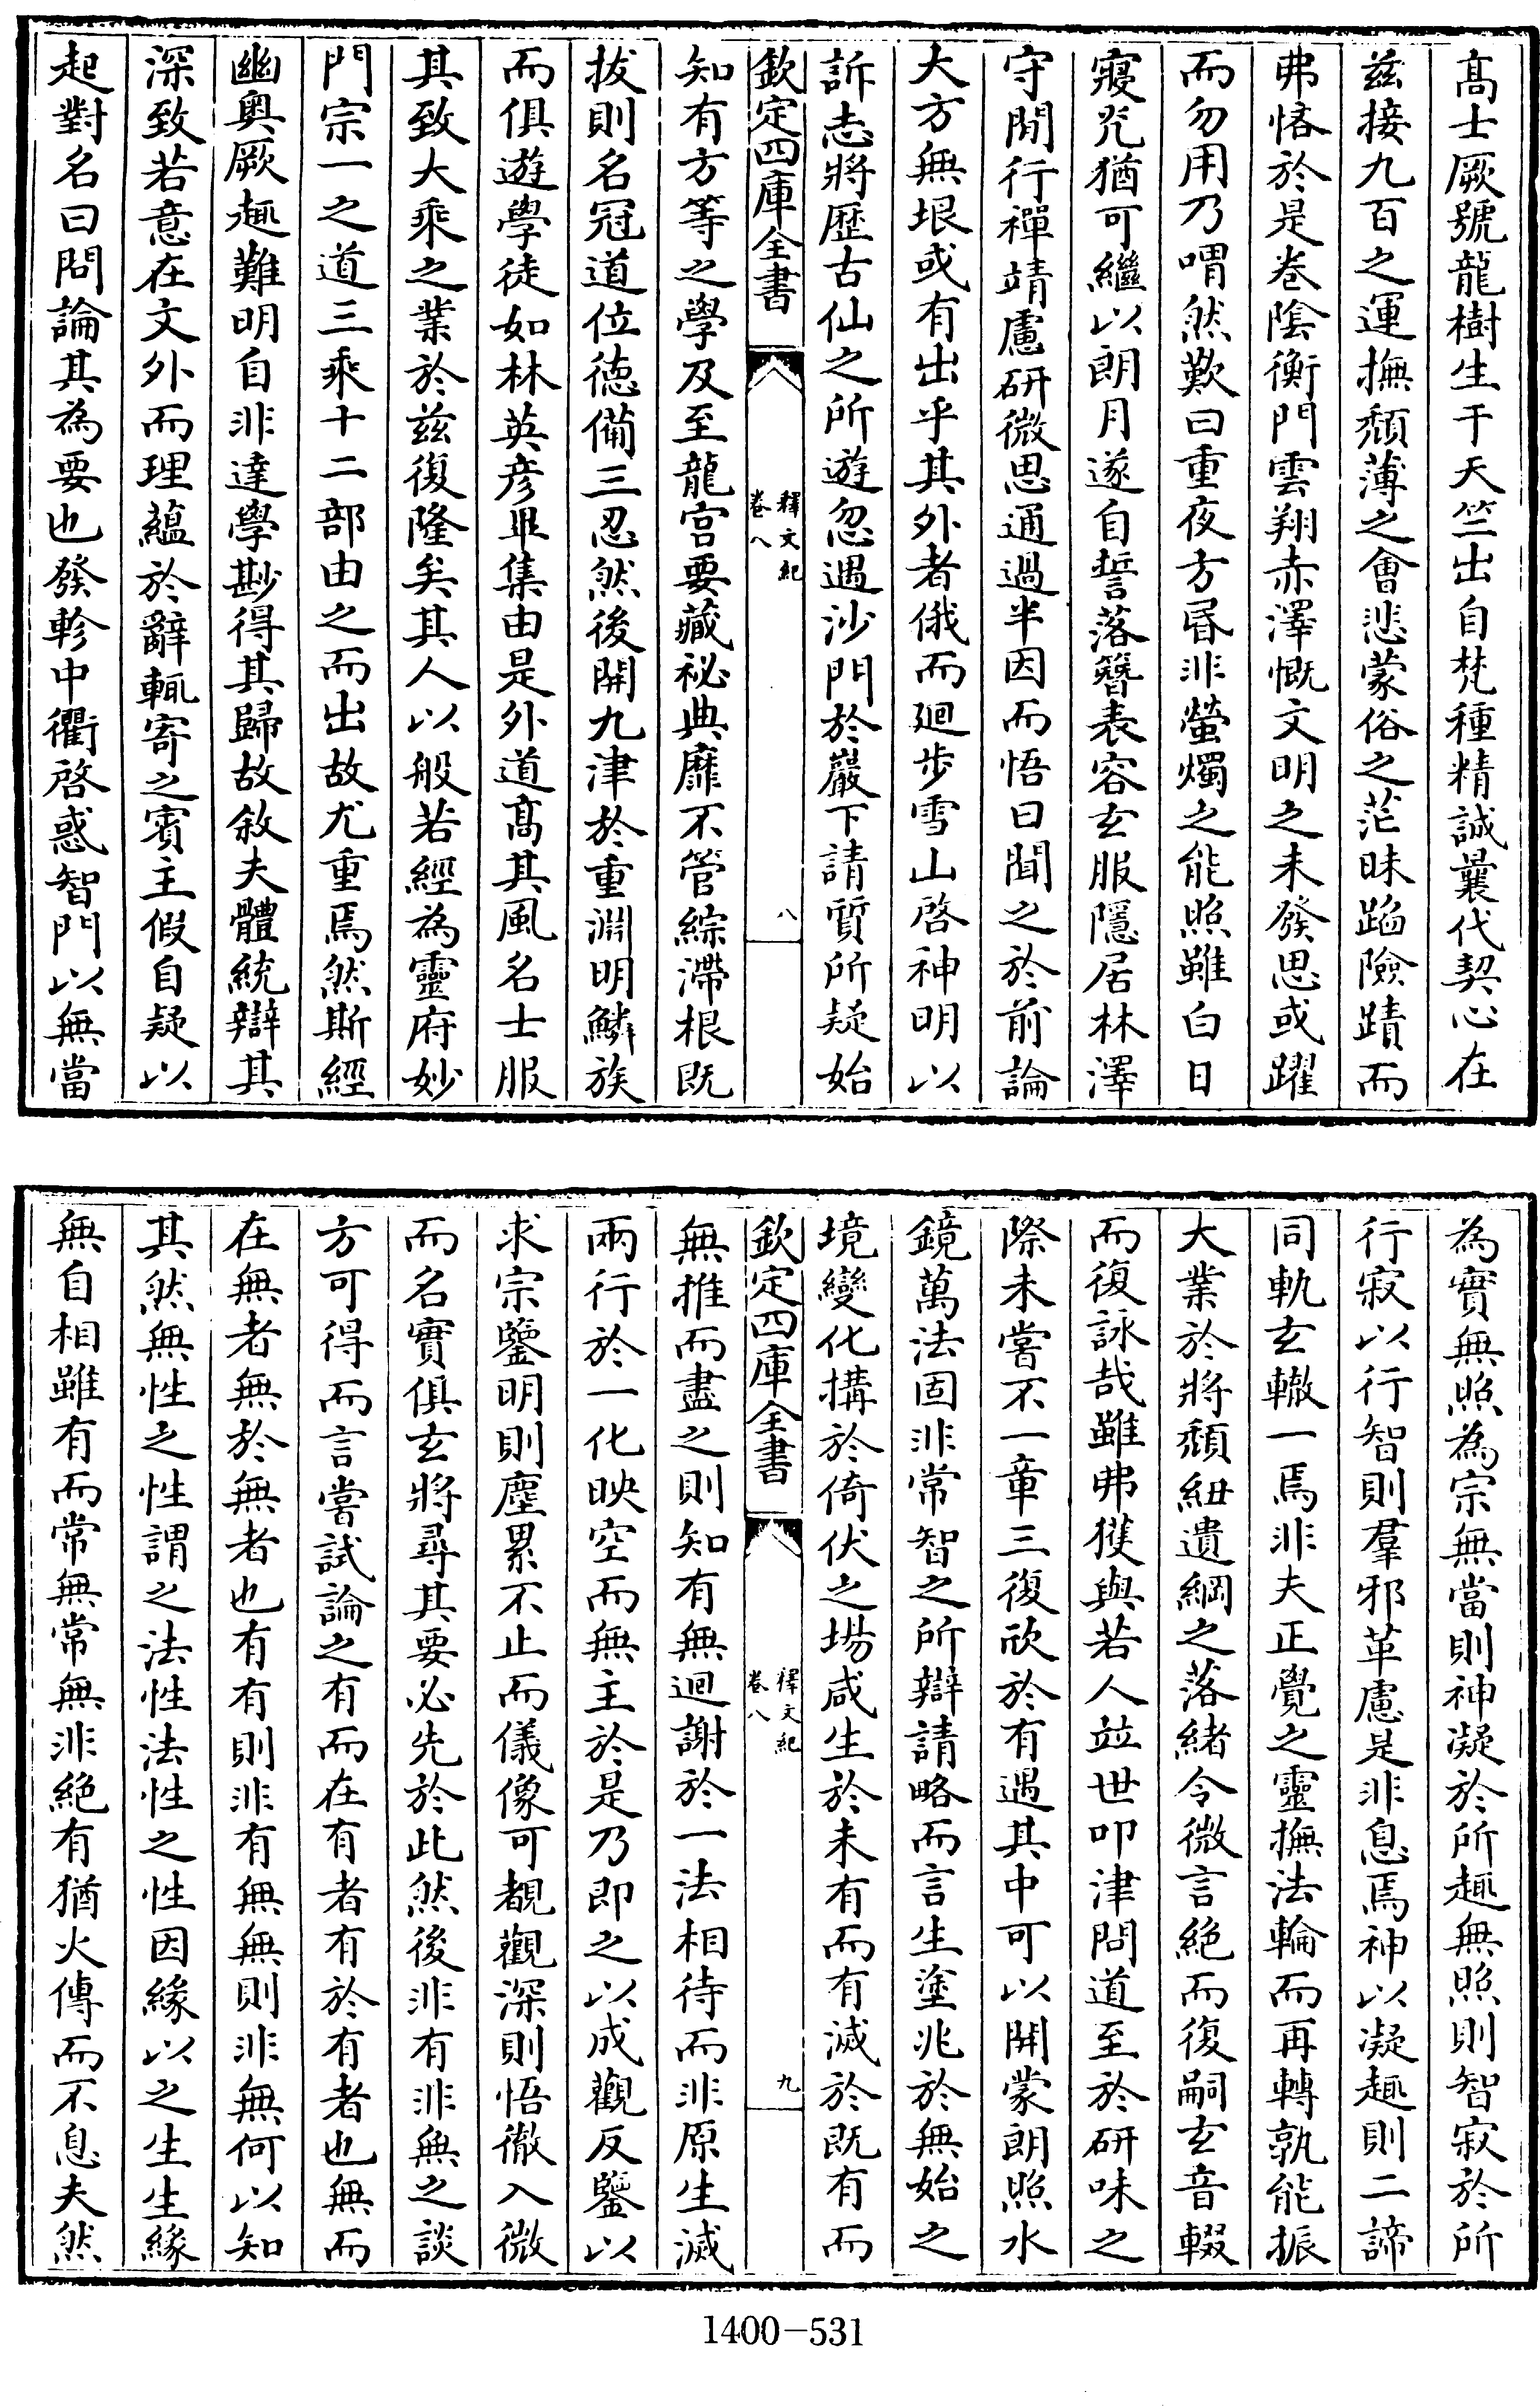 髙士厥號龍樹生于天竺出自梵種精誠曩代契心在
兹接九百之運撫頽薄之會悲蒙俗之茫昧蹈險蹟而
弗悋於是卷陰衡門雲翔赤澤慨文明之未發思或躍
而勿用乃喟然歎曰重夜方昬非螢燭之能照雖白日
寢光猶可繼以朗月遂自誓落簪表容玄服隱居林澤
守閒行禪靖慮研微思通過半因而悟曰聞之於前論
大方無垠或有出乎其外者俄而廻步雪山啓神明以
訴志將歴古仙之所遊忽遇沙門於巖下請質所疑始
欽定四庫全書
釋文紀
卷八
八
知有方等之學及至龍宮要藏祕典靡不管綜滯根既
拔則名冠道位徳備三忍然後開九津於重淵朋鱗族
而俱遊學徒如林英彦畢集由是外道髙其風名士服
其致大乘之業於兹復隆矣其人以般若經為靈府妙
門宗一之道三乘十二部由之而出故尤重焉然斯經
幽奥厥趣難明自非達學尠得其歸故敘夫體統辯其
深致若意在文外而理藴於辭輒寄之賓主假自疑以
起對名曰問論其為要也發軫中衢啓惑智門以無當
為實無照為宗無當則神凝於所趣無照則智寂於所
行寂以行智則羣邪革慮是非息焉神以凝趣則二諦
同軌玄轍一焉非夫正覺之靈撫法輪而再轉孰能振
大業於將頽紐遺綱之落緒令微言絶而復嗣玄音輟
而復詠哉雖弗獲與若人並世叩津問道至於研味之
際未嘗不一章三復欣於有遇其中可以開蒙朗照水
鏡萬法固非常智之所辯請略而言生塗兆於無始之
境變化搆於倚伏之場咸生於未有而有滅於既有而
欽定四庫全書
釋文紀
卷八
九
無推而盡之則知有無迴謝於一法相待而非原生滅
兩行於一化映空而無主於是乃即之以成觀反鑒以
求宗鑒明則塵累不止而儀像可覩觀深則悟徹入微
而名實俱玄將尋其要必先於此然後非有非無之談
方可得而言嘗試論之有而在有者有於有者也無而
在無者無於無者也有有則非有無無則非無何以知
其然無性之性謂之法性法性之性因緣以之生生緣
無自相雖有而常無常無非絶有猶火傳而不息夫然
1400-531